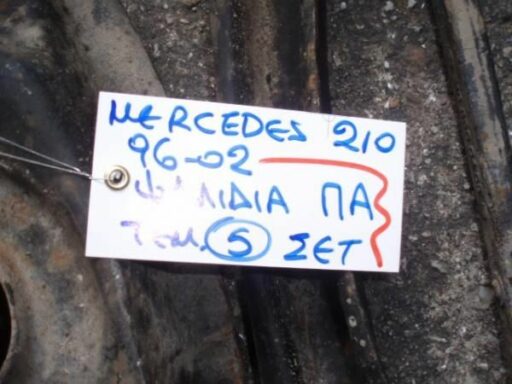 MERCEDES 210
96-02
ΨΑΛΙΔΙΑ ΠΑ
ΤΕΜ. 5 ΣΕΤ